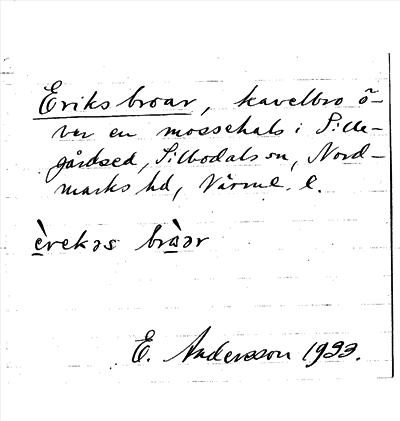 Eriksbroar, kavelbro ö-
ver en mossehals i Sille-
gårdsed, Silbodals sn, Nord-
marks hd, Värml. l.
èrekəs bràər
E. Andersson 1933.